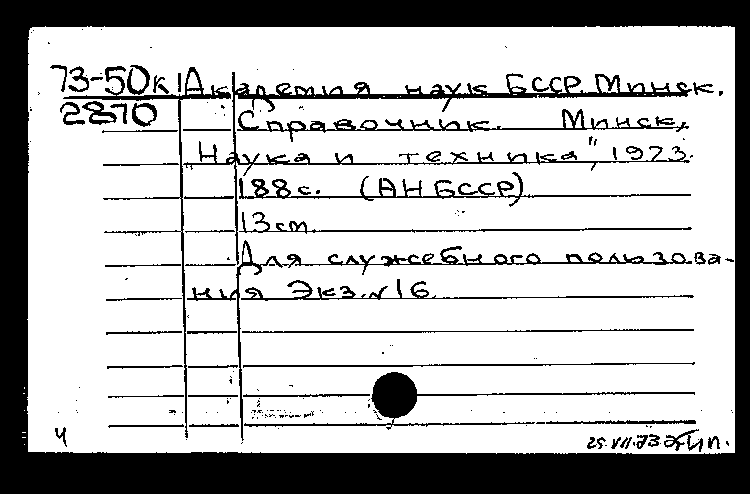 73-50к Академия наук БССР. Минск.
2870
Справочник. Минск,
„Наука и техника", 1973.
188с. (АН БССР)
13 cm.
Для служебного пользова-
ния Экз.№16
Ч
25.VII.73